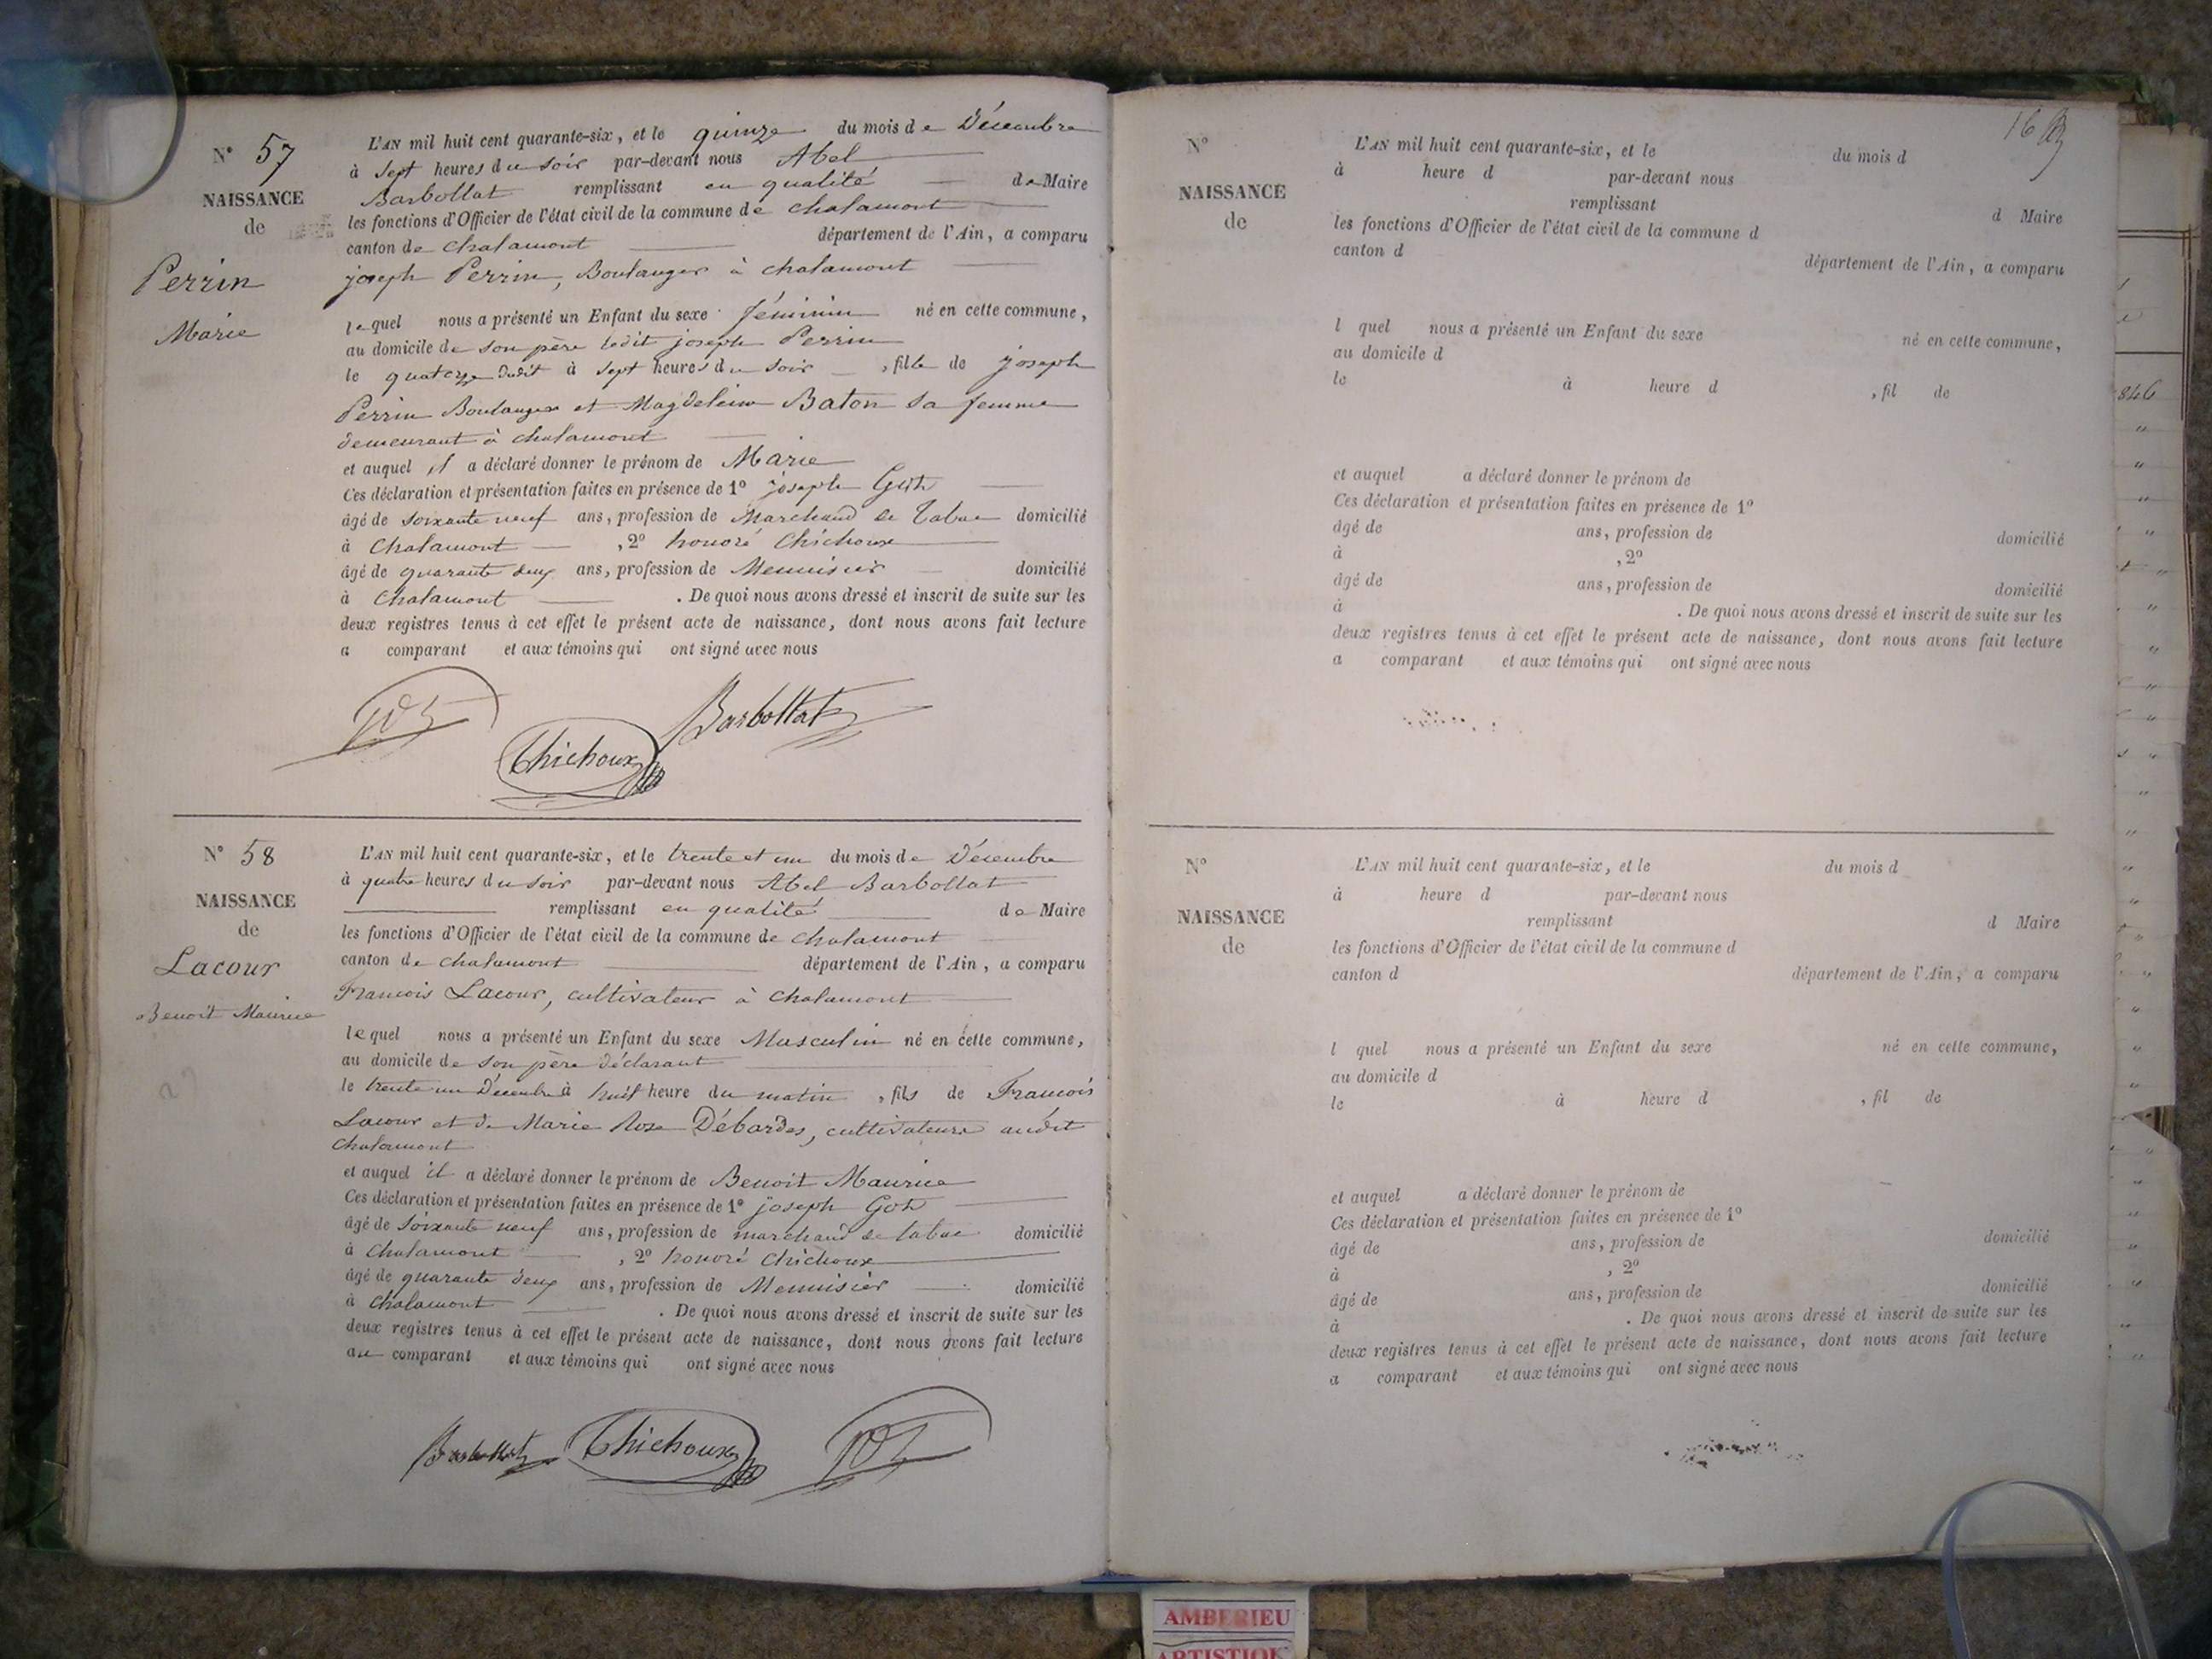 N° 57
NAISSANCE
de
Perrin
Marie
L'AN mil huit cent quarante-six, et le quinze du mois de Décembre
à sept heures du soir par-devant nous Abel
Barbollat remplissant en qualité de Maire
les fonctions d'Officier de l'état civil de la commune de chalamont
canton de chalamont département de l'Ain, a comparu
joseph Perrin, Boulanger à chalamont
lequel nous a présenté un Enfant du sexe féminin né en cette commune,
au domicile de son père ledit joseph Perrin
le quatorze dudit à sept heures du soir , fille de joseph
Perrin Boulanger et Magdeleine Baton sa femme
demeurant à chalamont
et auquel il a déclaré donner le prénom de Marie
Ces déclaration et présentation faites en présence de 1° joseph
âgé de soixante neuf ans, profession de Marchand de Tabac domicilié
à Chalamont , 2° honoré Chichoux
âgé de quarante deux ans, profession de Menuisier domicilié
à Chalamont . De quoi nous avons dressé et inscrit de suite sur les
deux registres tenus à cet effet le présent acte de naissance, dont nous avons fait lecture
a comparant et aux témoins qui ont signé avec nous
Barbollat
Chichoux
N° 58
NAISSANCE
de
Lacour
Benoit Maurice
L'AN mil huit cent quarante-six, et le trente et un du mois de Décembre
à quatre heures du soir par-devant nous Abel Barbollat
remplissant en qualité de Maire
les fonctions d'Officier de l'état civil de la commune de chalamont
canton de chalamont département de l'Ain, a comparu
Francois Lacour, cultivateur à chalamont
lequel nous a présenté un Enfant du sexe Masculin né en cette commune,
au domicile de son père déclarant
le trente un Décembre à huit heure du matin , fils de Francois
Lacour et de Marie Rose Débardes, cultivateurs audit
chalamont
et auquel il a déclaré donner le prénom de Benoit Maurice
Ces déclaration et présentation faites en présence de 1° joseph
âgé de soixante neuf ans, profession de marchand de tabac domicilié
à chalamont , 2° honoré chichoux
âgé de quarante deux ans, profession de Menuisier domicilié
à chalamont . De quoi nous avons dressé et inscrit de suite sur les
deux registres tenus à cet effet le présent acte de naissance, dont nous avons fait lecture
au comparant et aux témoins qui ont signé avec nous
Barbollat Chichoux
16
N°
NAISSANCE
de
L'AN mil huit cent quarante-six, et le du mois d
à heure d par-devant nous
remplissant d Maire
les fonctions d'Officier de l'état civil de la commune d
canton d département de l'Ain, a comparu
l quel nous a présenté un Enfant du sexe né en cette commune,
au domicile d
le à heure d , fil de
et auquel a déclaré donner le prénom de
Ces déclaration et présentation faites en présence de 1°
âgé de ans, profession de domicilié
à , 2°
âgé de ans, profession de domicilié
à . De quoi nous avons dressé et inscrit de suite sur les
deux registres tenus à cet effet le présent acte de naissance, dont nous avons fait lecture
a comparant et aux témoins qui ont signé avec nous
N°
NAISSANCE
de
L'AN mil huit cent quarante-six, et le du mois d
à heure d par-devant nous
remplissant d Maire
les fonctions d'Officier de l'état civil de la commune d
canton d département de l'Ain, a comparu
l quel nous a présenté un Enfant du sexe né en cette commune,
au domicile d
le à heure d , fil de
et auquel a déclaré donner le prénom de
Ces déclaration et présentation faites en présence de 1°
âgé de ans, profession de domicilié
à , 2°
âgé de ans, profession de domicilié
à . De quoi nous avons dressé et inscrit de suite sur les
deux registres tenus à cet effet le présent acte de naissance, dont nous avons fait lecture
a comparant et aux témoins qui ont signé avec nous
846
AMBERIEU